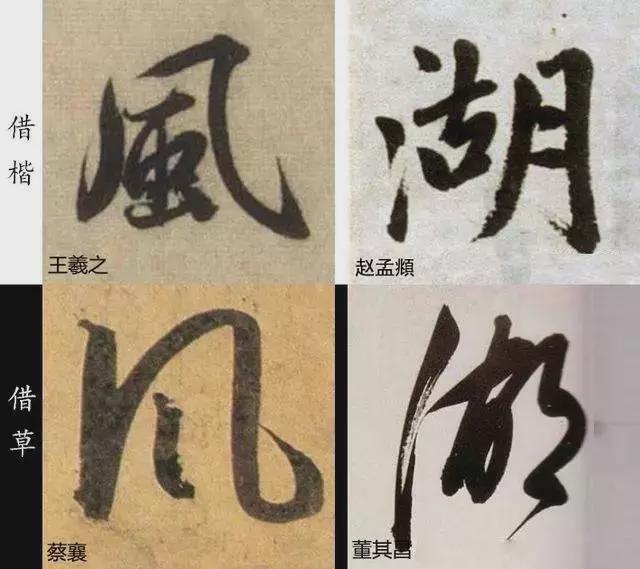 借楷
風
湖
王羲之
赵孟頫
借草
风
湖
蔡襄
董其昌